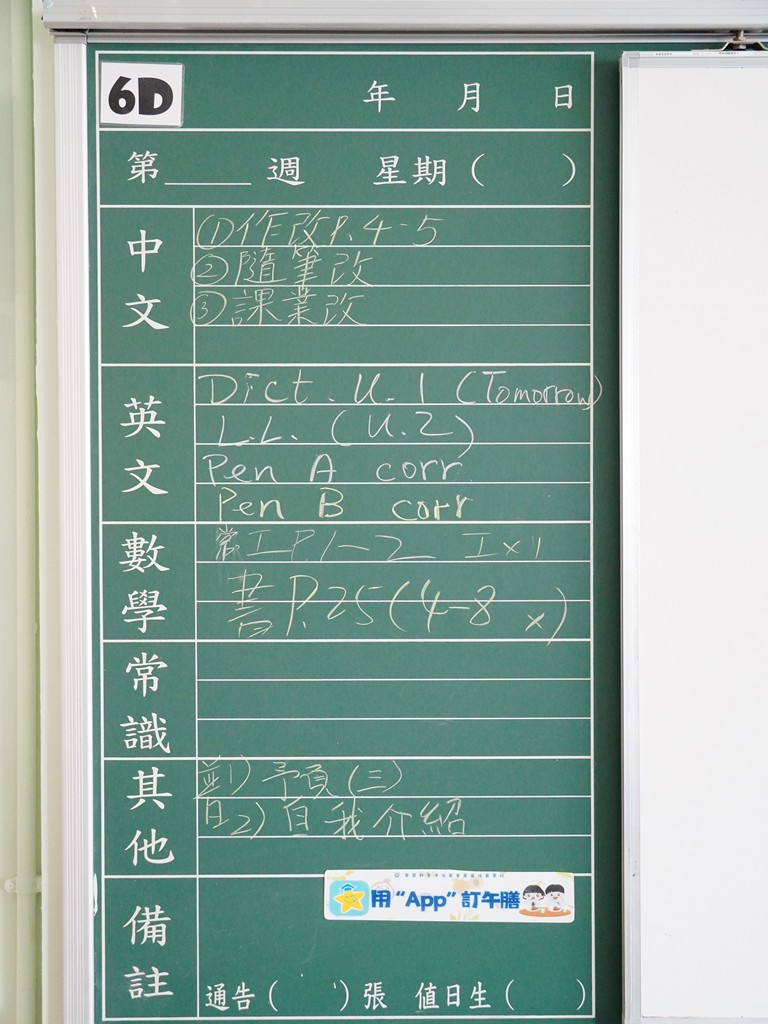 6D
年 月 日
第____週 星期( )
中文
①作改P.4-5
②隨筆改
③課業改
英文
Dict. U.1 (Tomorrow)
L.L. (U.2)
Pen A corr
Pen B corr
數學
常 I P.1-2 I×1
書P.25(4-8 ×)
常識
其他
1) 予頁(三)
2) 自我介紹
備註
用“App”訂午膳
通告( )張 值日生( )